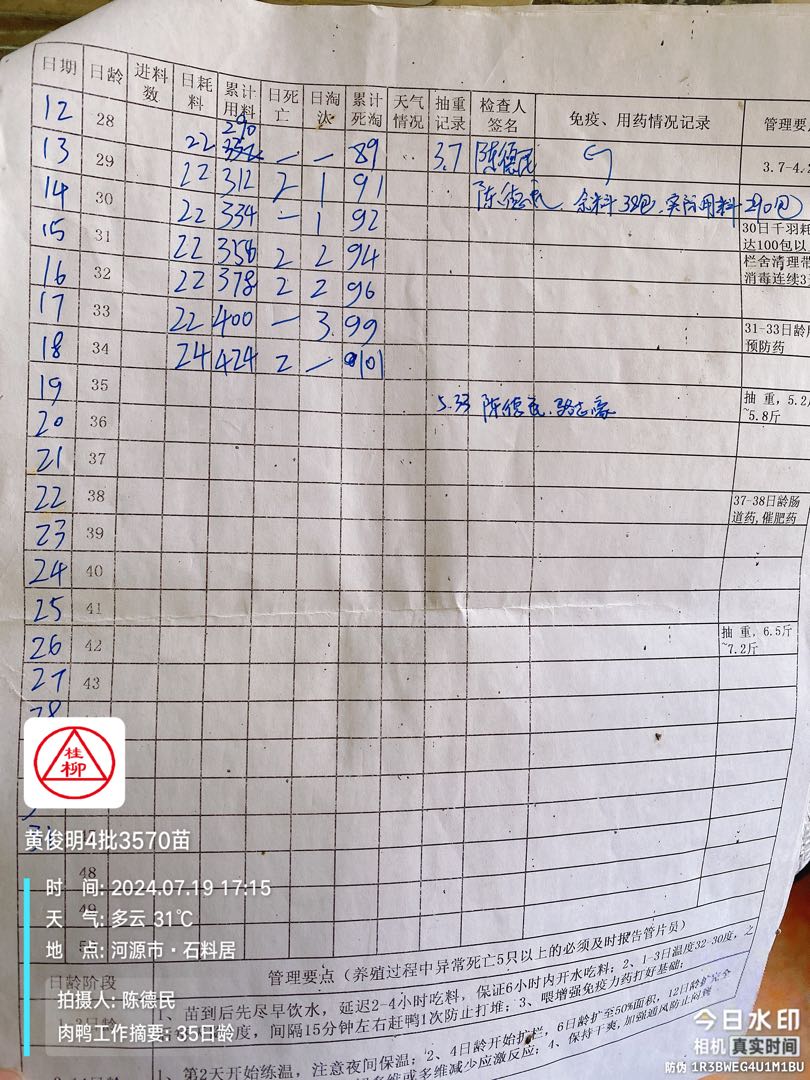 日期 日龄 进料数 日耗料 累计用料 日死亡 日淘汰 累计死淘 天气情况 抽重记录 检查人签名 免疫、用药情况记录 管理要
12 28 290
13 29 22 一 一 89 3.7 陈德民 3.7-4.2
14 30 22 312 2 1 91 陈德民 余料38包.实际用料290包
15 31 22 334 一 1 92 30日千羽耗
达100包以
16 32 22 356 2 2 94 栏舍清理带
消毒连续3
17 33 22 378 2 2 96
18 34 22 400 一 3 99 31-33日龄
预防药
19 35 24 424 2 一 101
20 36 5.33 陈德民. 抽 重, 5.2
~5.8斤
21 37
22 38 37-38日龄肠
道药,催肥药
23 39
24 40
25 41
26 42 抽 重, 6.5斤
~7.2斤
27 43
28
桂
柳
黄俊明4批3570苗
48
49
时 间: 2024.07.19 17:15
天 气: 多云 31℃
地 点: 河源市·石料居
拍摄人: 陈德民
肉鸭工作摘要: 35日龄
日龄阶段 管理要点(养殖过程中异常死亡5只以上的必须及时报告管片员)
1、苗到后先尽早饮水,延迟2-4小时吃料,保证6小时内开水吃料;2、1-3日温度32-30度,之
度,间隔15分钟左右赶鸭1次防止打堆;3、喂增强免疫力药打好基础;
1、第2天开始练温,注意夜间保温;2、4日龄开始扩栏,6日龄扩至50%面积,12日龄扩完全
多维减少应激反应;4、保持干爽,加强通风防止闷
今日水印
相机 真实时间
防伪 1R3BWEG4U1M1BU